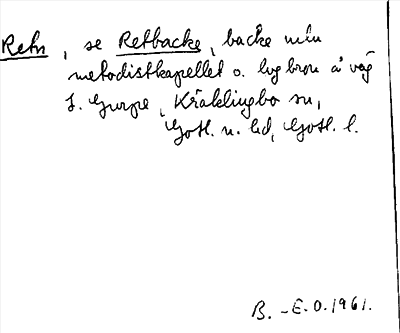 Retn, se Retbacke, backe mın
metodistkapellet o. lvg bron å väg
t. Gurpe, Kräklingbo sn,
Gotl. n. hd, Gotl. l.
B. -E. O. 1961.